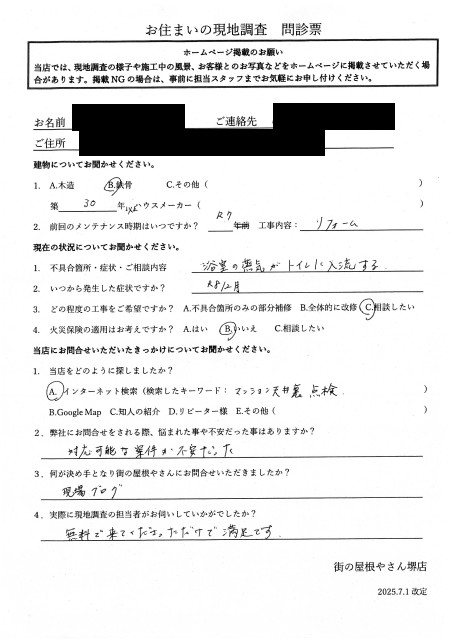 お住まいの現地調査　問診票
ホームページ掲載のお願い
当店では、現地調査の様子や施工中の風景、お客様とのお写真などをホームページに掲載させていただく場
合があります。掲載 NG の場合は、事前に担当スタッフまでお気軽にお申し付けください。
お名前　ご連絡先
ご住所
建物についてお聞かせください。
1. A.木造　B.鉄骨　C.その他（　）
築 30 年 ハウスメーカー（　）
2. 前回のメンテナンス時期はいつですか？ R7 年前 工事内容： リフォーム
現在の状況についてお聞かせください。
1. 不具合箇所・症状・ご相談内容 浴室の蒸気がトイレに入流する
2. いつから発生した症状ですか？ R8/2月
3. どの程度の工事をご希望ですか？ A.不具合箇所のみの部分補修 B.全体的に改修 C.相談したい
4. 火災保険の適用はお考えですか？ A.はい B.いいえ C.相談したい
当店にお問合せいただいたきっかけについてお聞かせください。
1. 当店をどのように探しましたか？
A.インターネット検索（検索したキーワード： マンション天井裏 点検 ）
B.Google Map C.知人の紹介 D.リピーター様 E.その他（　）
2．弊社にお問合せをされる際、悩まれた事や不安だった事はありますか？
対応可能な案件か不安だった
3．何が決め手となり街の屋根やさんにお問合せいただきましたか？
現場ブログ
4．実際に現地調査の担当者がお伺いしていかがでしたか？
無料で来てくださっただけで満足です
街の屋根やさん堺店
2025.7.1 改定